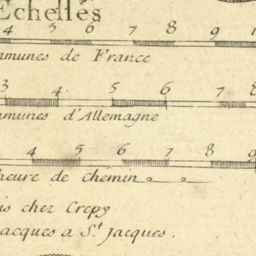 Echelles
4 5 6 7 8 9
mmunes de France
3 4 5 6 7 8
mmunes d'Allemagne
4 5 6 7 8 9
heure de chemin
is chez Crepy
Jacques a S.t Jacques.